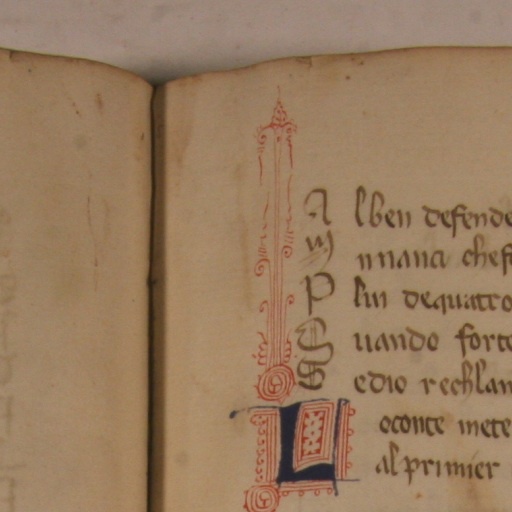 A lben defende
M nnanci chef
P lui dequatro
Q uando forte
S edio rechlam
L oconte mete
al primier